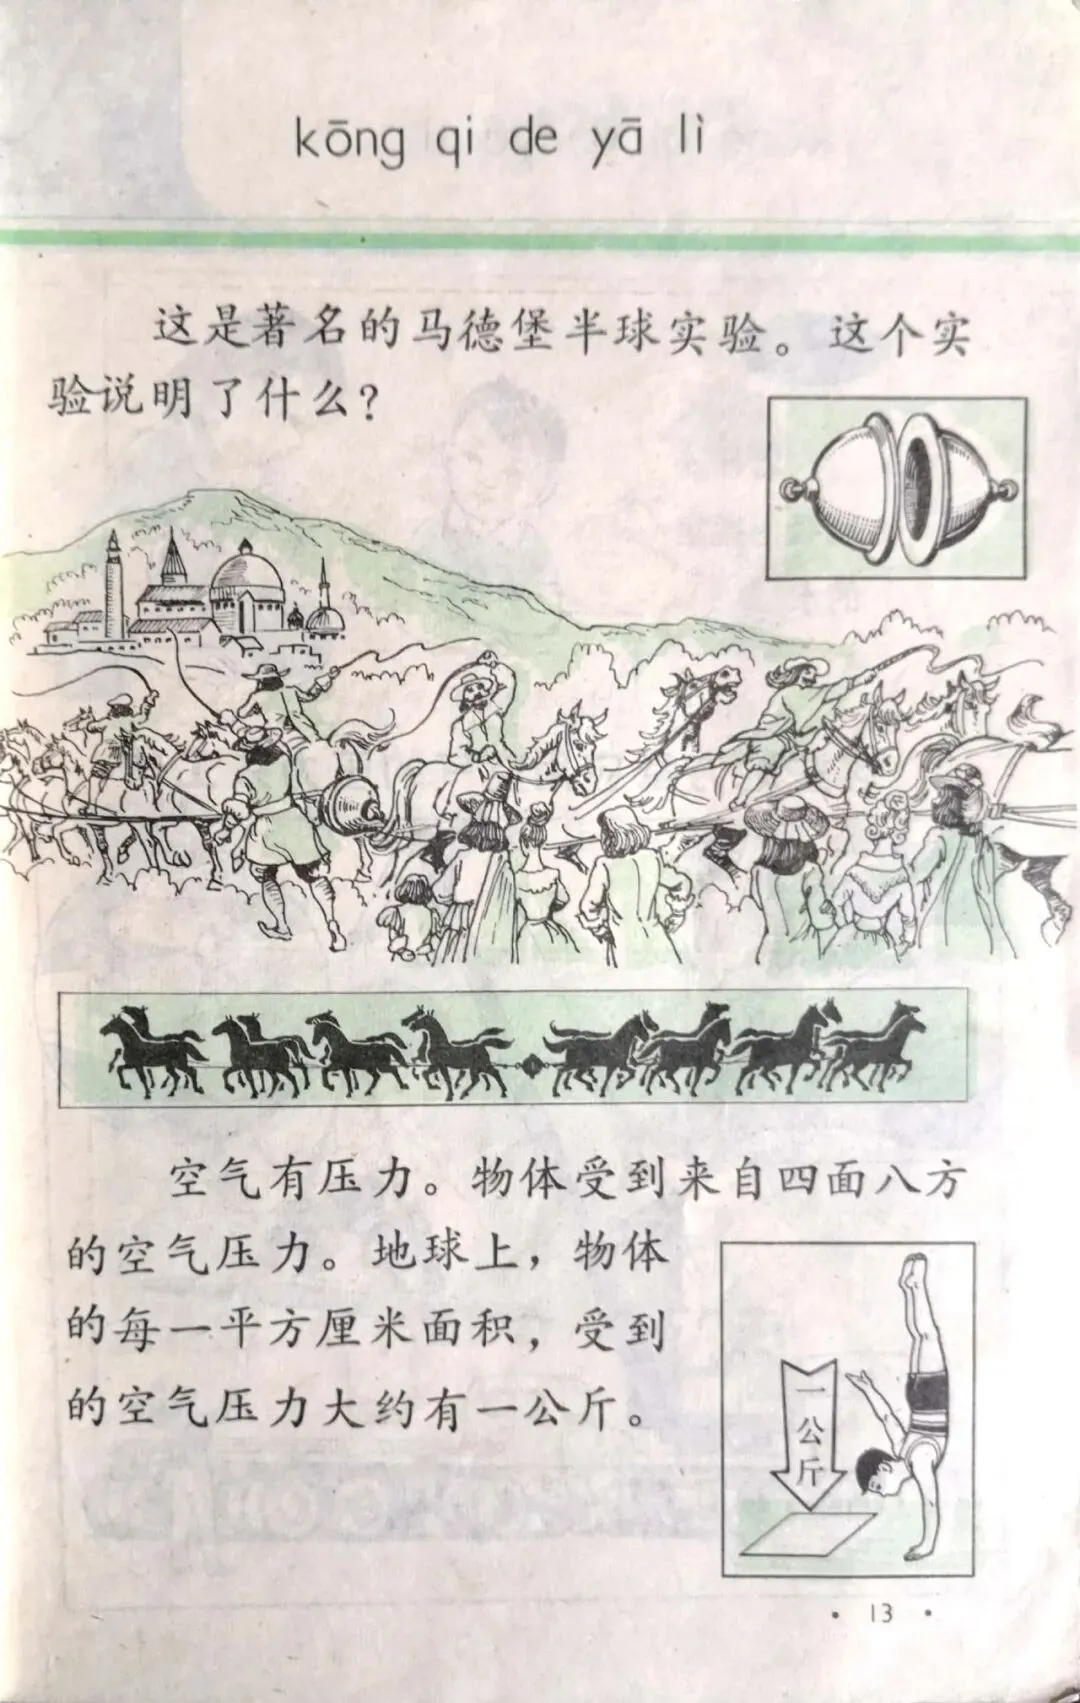 kōng qi de yā lì
这是著名的马德堡半球实验。这个实
验说明了什么?
空气有压力。物体受到来自四面八方
的空气压力。地球上，物体
的每一平方厘米面积，受到
的空气压力大约有一公斤。
一公斤
· 13 ·